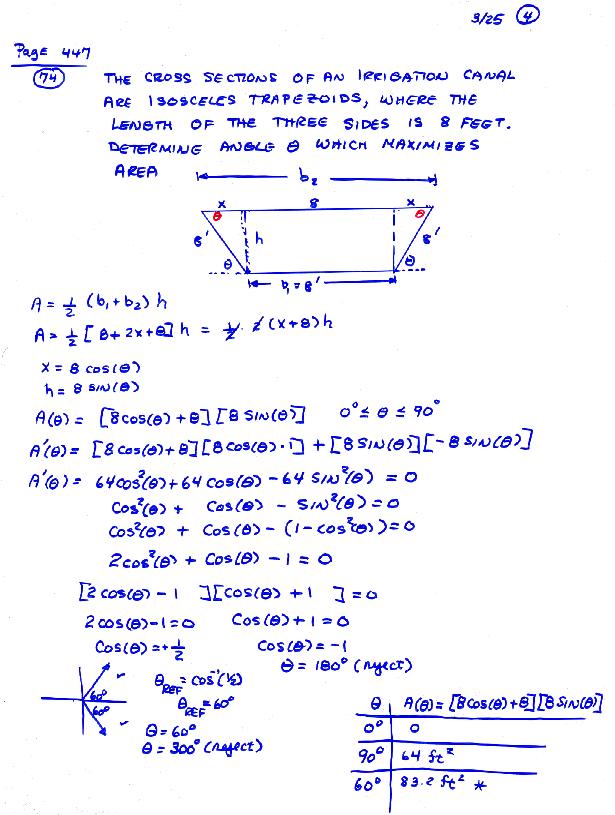 3/25 ④
Page 447
74 THE CROSS SECTIONS OF AN IRRIGATION CANAL
ARE ISOSCELES TRAPEZOIDS, WHERE THE
LENGTH OF THE THREE SIDES IS 8 FEET.
DETERMINE ANGLE θ WHICH MAXIMIZES
AREA
b₂
x 8 x
θ θ
8' h 8'
θ θ
b₁ = 8'
A = ½ (b₁ + b₂) h
A = ½ [8 + 2x + 8] h = ½ · 2 (x + 8) h
x = 8 cos(θ)
h = 8 sin(θ)
A(θ) = [8cos(θ) + 8][8 sin(θ)] 0° ≤ θ ≤ 90°
A'(θ) = [8 cos(θ) + 8][8 cos(θ) · 1] + [8 sin(θ)][-8 sin(θ)]
A'(θ) = 64cos²(θ) + 64 cos(θ) - 64 sin²(θ) = 0
cos²(θ) + cos(θ) - sin²(θ) = 0
cos²(θ) + cos(θ) - (1 - cos²(θ)) = 0
2cos²(θ) + cos(θ) - 1 = 0
[2 cos(θ) - 1 ][cos(θ) + 1 ] = 0
2 cos(θ) - 1 = 0 cos(θ) + 1 = 0
cos(θ) = + ½ cos(θ) = -1
θ = 180° (reject)
60° ✓ θREF = cos⁻¹(½)
60° ✓ θREF = 60°
θ = 60°
θ = 300° (reject)
θ A(θ) = [8cos(θ) + 8][8 sin(θ)]
0° 0
90° 64 ft²
60° 83.2 ft² *